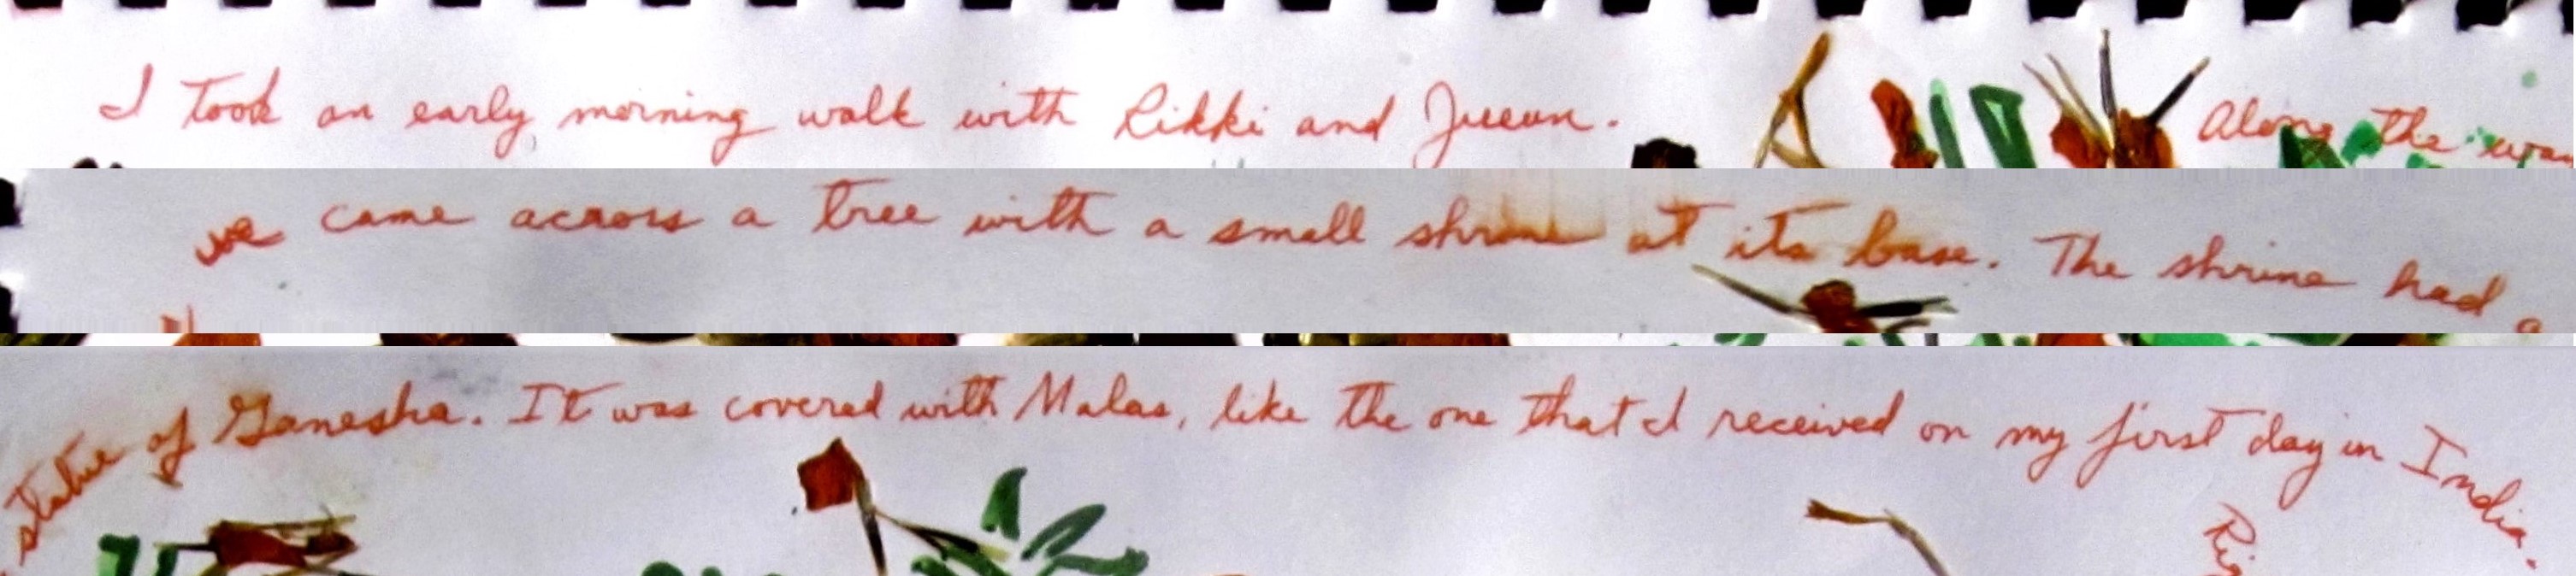 I took an early morning walk with Rikki and Along the way
we came across a tree with a small shrine at its base. The shrine had a
statue of Ganesha. It was covered with Malas, like the one that I received on my first day in India.